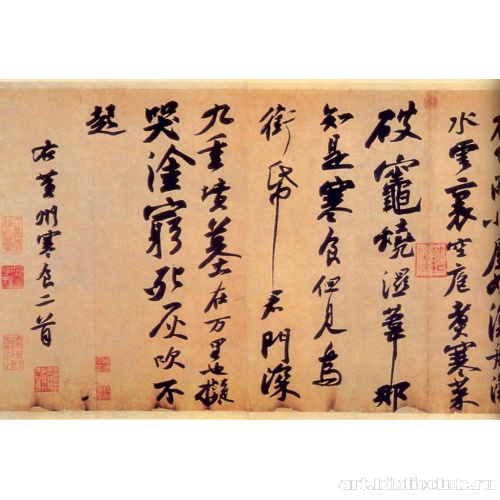 小屋如
水雲裏空庖煮寒菜
破竈燒濕葦那
知是寒食但見烏
銜帋君門深
九重墳墓在万里也擬
哭塗窮死灰吹不
起
右黃州寒食二首
art.biblioclub.ru